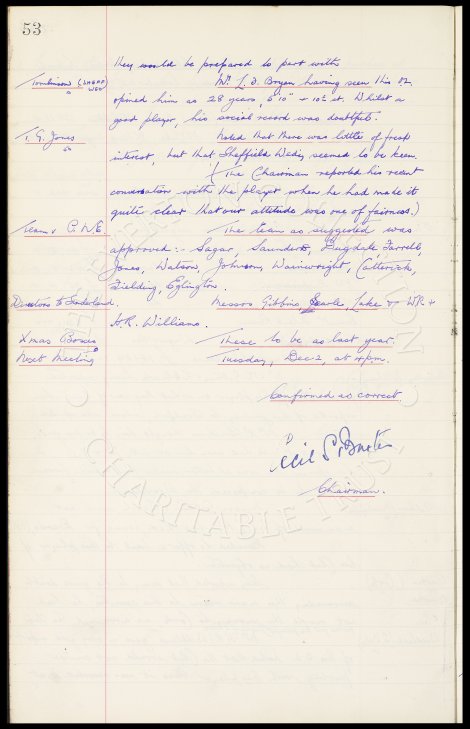 53
they would be prepared to part with
Tomlinson (SHEFF WED) Mr. L. D. Bryan having seen this
opined him as 28 years, 5'10" + 10½ st. Whilst a
good player, his social record was doubtful.
T. G. Jones Noted that there was little of fresh
interest, but that Sheffield Wedy seemed to be keen.
(The Chairman reported his recent
conversation with the player when he had made it
quite clear that our attitude was one of fairness.)
Team v P.N.E. The team as suggested was
approved:- Sagar, Saunders, Dugdale Farrell,
Jones, Watson, Johnson, Wainwright, Catterick,
Fielding, Eglington.
Directors to Sunderland. Messrs Gibbins, Searle, Lake + WR +
H.R. Williams.
Xmas Boxes These to be as last year.
Next Meeting Tuesday, Dec 2, at 4pm.
Confirmed as correct.
Cecil S. Baxter
Chairman.
CHARITABLE TRUST